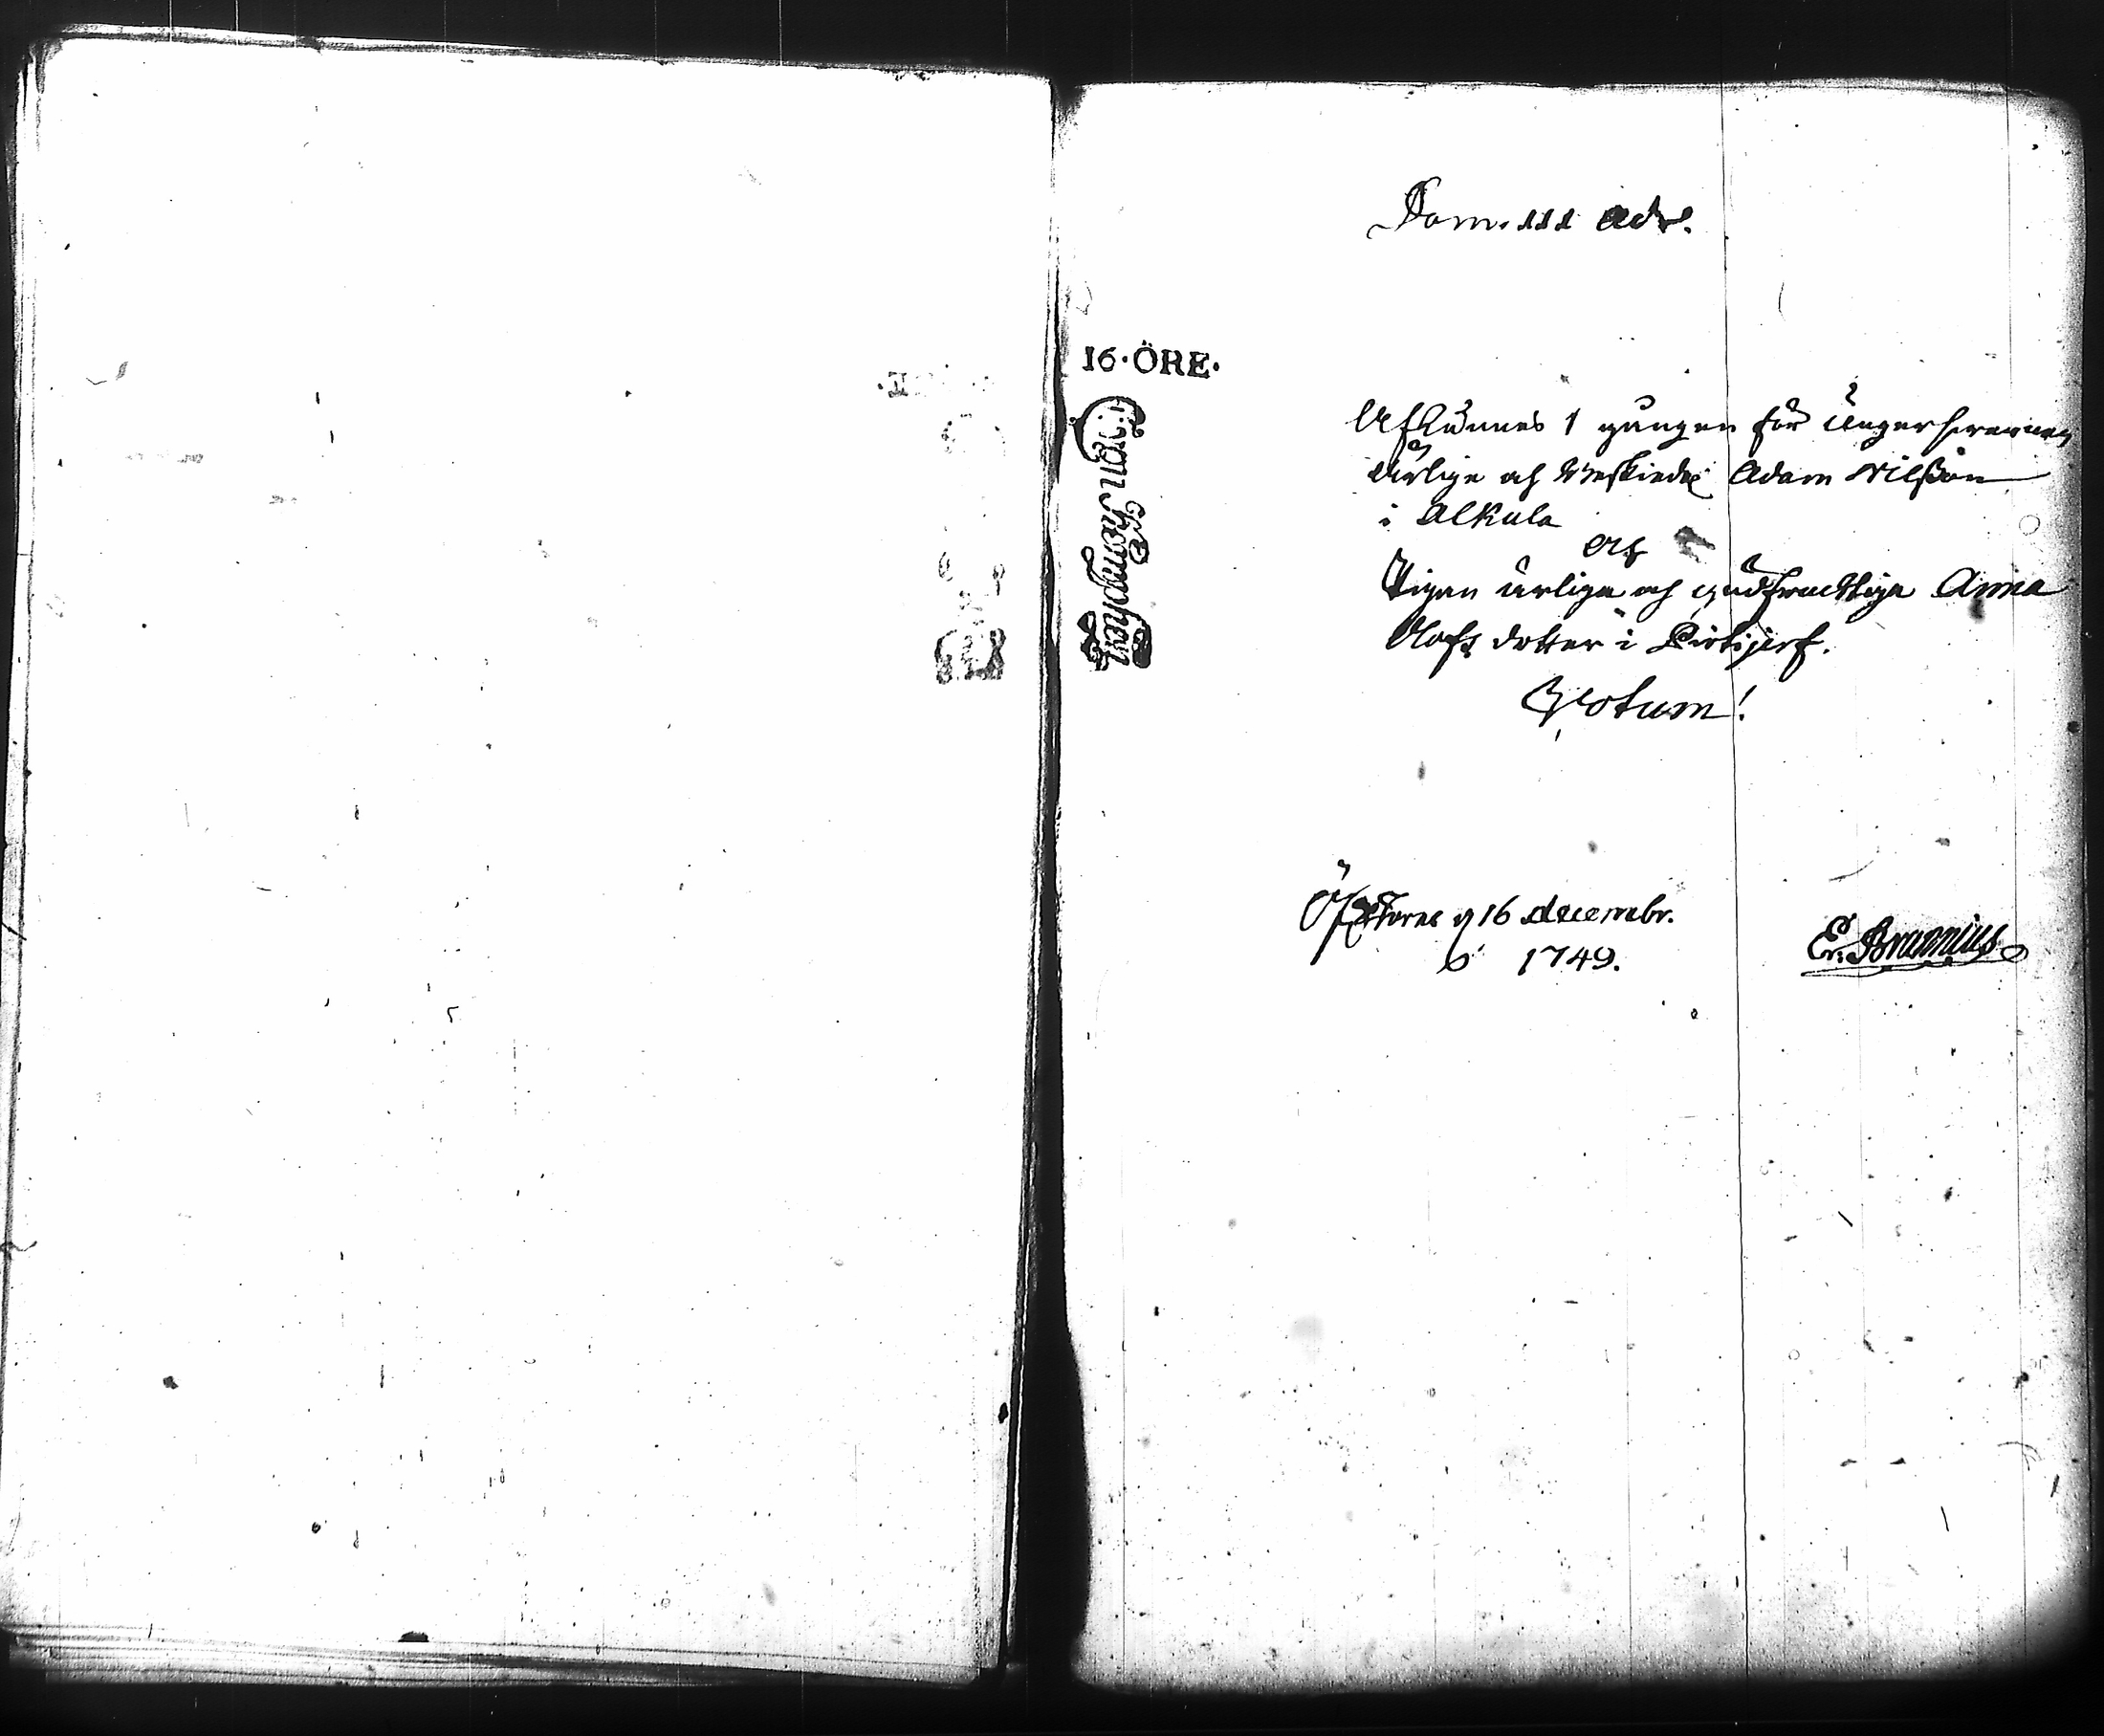 Dom. III adv.
16·ÖRE·
Charta Sigillata
Aflÿsnes 1 gången för Ungersvennen
ärlige och beskiedl. Adam Nilßon
i Alkula
och
Pigan ärliga och gudfrucktiga Anna
Olofs dotter i
Votum!
Öf. Torne d 16 decembr.
1749.
Er. Brunnius